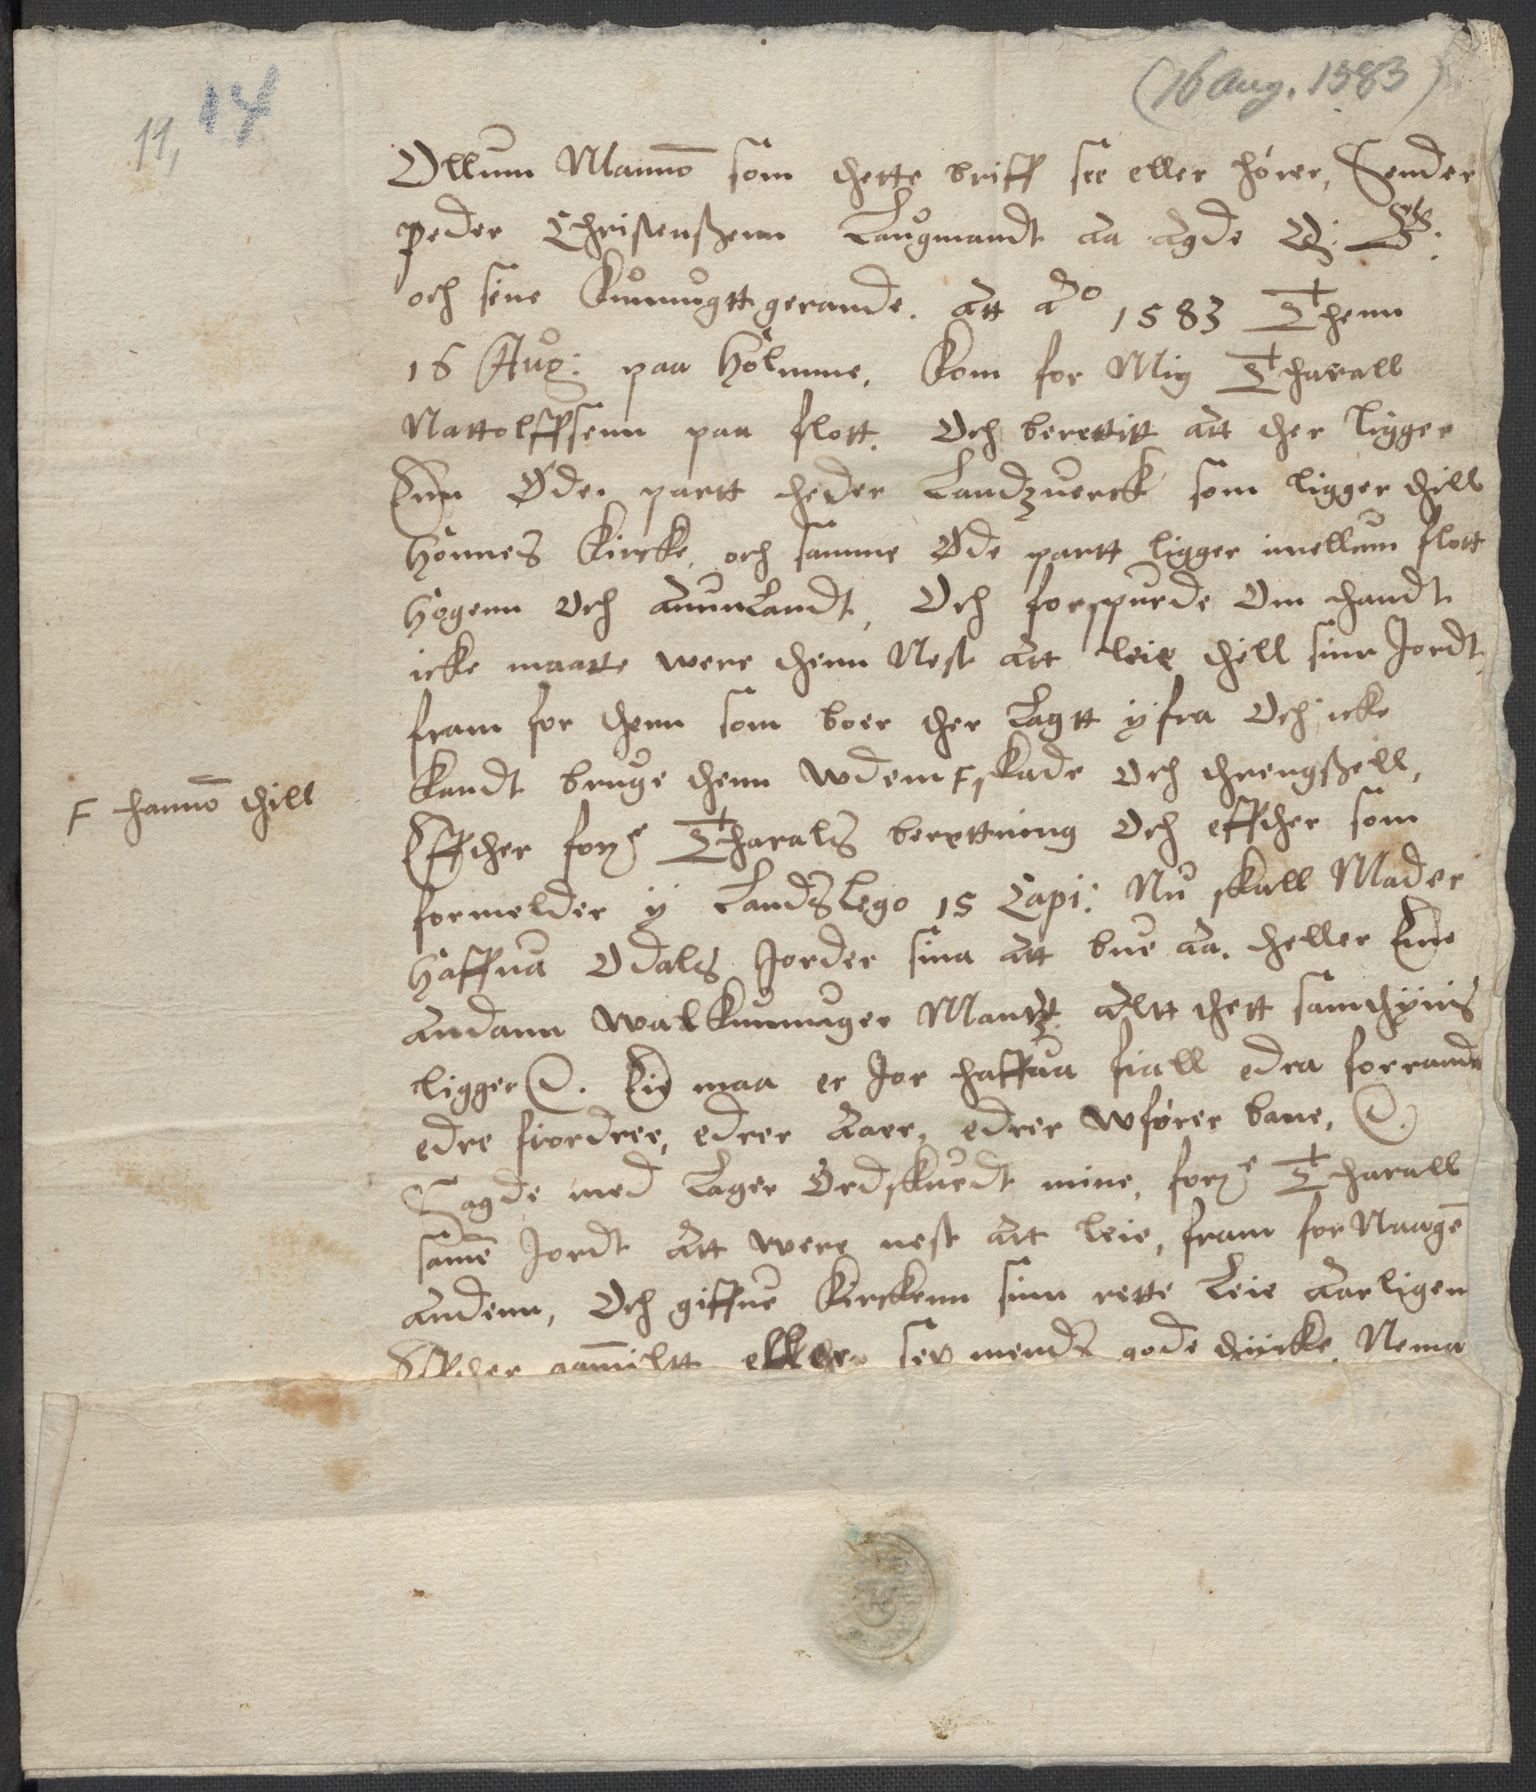 (16 Aug. 1583)
14
11,
Ollum Mannō som thette breff see eller hörer, Sender
Peder Christenßenn Laugmandt aa Agde Q: G:
och sine Kunnugtt gerande. Att Ao 1583 Thenn
16 Aug: paa Hölmme, Kom for Mig Tharall
Nattolffsenn paa flott. Och berettitt att ther ligger
Enn Øde partt heder Landzuerck som ligger thill
Hönnes Kircke, och samme Øde partt ligger imellum flott
Högenn Och Aunnlandt, Och forspurde Om handt
icke maatte were thenn Nest Att leie thill sinn Jordt
fram for thenn som boer ther Langtt y fra Och icke
kandt bruge thenn wdenn F skade Och threngßell,
F hannō thill
Effther forne Tharals berettning Och effther som
formelder y Landslego 15 Capi: Nu skall Mader
Haffua Odals Jorder sina Att bue aa. heller Enne
Andann walkunnuger Mantz Altt thett samthynis
ligger etc. Ey maa er Jor haffua fiall edra forrande
edre fiordree, edrer Aaer, edrer wförer bane, etc.
Sagde med Lager Ordskurdt mine, forne Tharall
samē Jordt Att were nest Att leie, fram for Naagē
Andenn, Och giffue Kirckenn sinn rette Leie Aarligen
Effther gāmiltt eller sex mends gode thycke. Nema